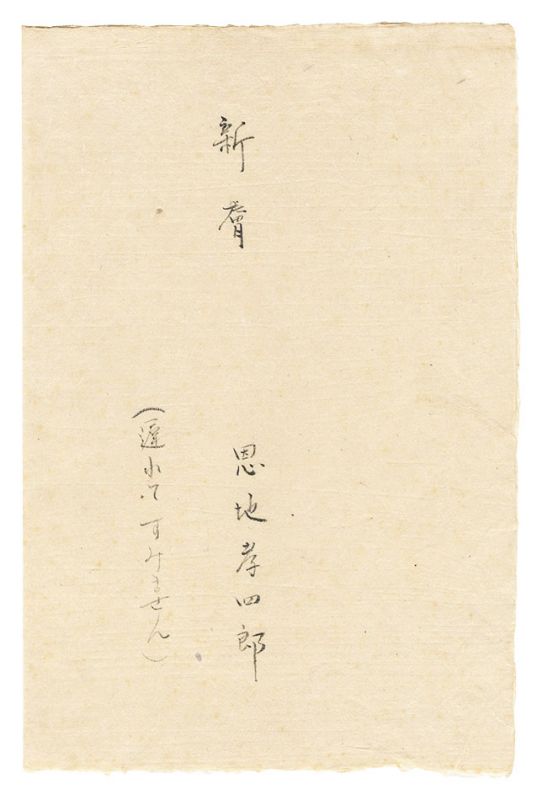 新
恩地孝四郎
(遲れてすみません)